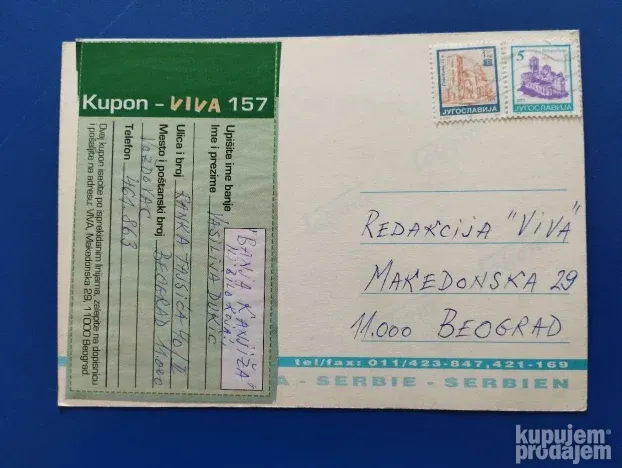 Kupon - VIVA 157
Upišite ime banje
"BANJA KANJIŽA"
Ime i prezime VASILIJA DUKIĆ
Ulica i broj RANKA TAJSIĆA 40/II
Mesto i poštanski broj BEOGRAD 11.000
VOŽDOVAC
Telefon 401.863
Ovaj kupon isecite po isprekidanim linijama, zalepite na dopisnicu
i pošaljite na adresu: VIVA, Makedonska 29, 11000 Beograd.
ЈУГОСЛАВИЈА
5
ЈУГОСЛАВИЈА
REDAKCIJA "VIVA"
MAKEDONSKA 29
11.000 BEOGRAD
tel/fax: 011/423-847,421-169
A - SERBIE - SERBIEN
kupujem
prodajem